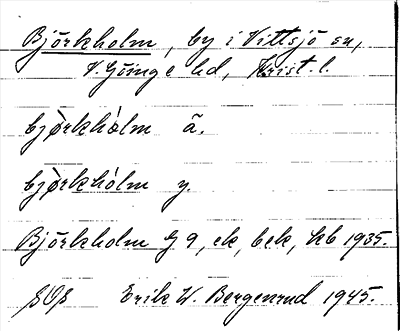 Björkholm, by i Vittsjö sn,
V. Göinge hd, Krist. l.
bjòrkhólm ä.
bjòrkhólm y.
Björkholm G 9, ek, bek, kb 1935.
SOS Erik W. Bergenrud 1945.